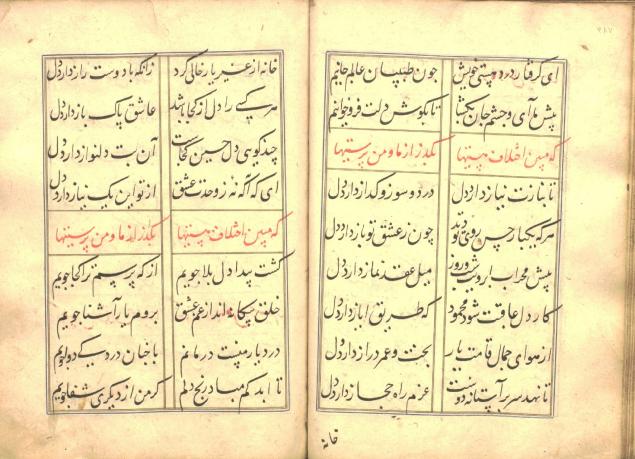 ای گرفتار درد هستی خویش چون طبیبان عالم جانیم
پیش ما آی و چشم جان بگشا تا بگوش دلت فرو خوانیم
که مبین اختلاف هستیها بگذر از ما و من پرستیها
تا بنازت نیاز دارد دل درد و سوز و گداز دارد دل
هر که یکبار حسن روی تو دید چون ز عشق تو باز دارد دل
پیش محراب ابرویت شب و روز میل عقد نماز دارد دل
کار دل عاقبت شود محمود که طریق ایاز دارد دل
از هوای جمال قامت یار بخت و عمر دراز دارد دل
تا نهد سر بر آستانه دوست عزم راه حجاز دارد دل
خانه
خانه از غیر یار خالی کرد زانکه با دوست راز دارد دل
هر کسی را دل از کجا باشد عاشق پاک باز دارد دل
چند کوئی دل حسین کجاست آن بت دلنواز دارد دل
ای که آگه نه ز وحدت عشق از تو این یک نیاز دارد دل
که مبین اختلاف هستیها بگذر از ما و من پرستیها
گشت پیدا دل بلا جویم از که پرسم ترا کجا جویم
خلق بیگانه اند از غم عشق بروم یار آشنا جویم
درد یار منست درمانم با چنان درد کی دوا جویم
تا ابد کم مباد رنج دلم گر من از دیگری شفا جویم